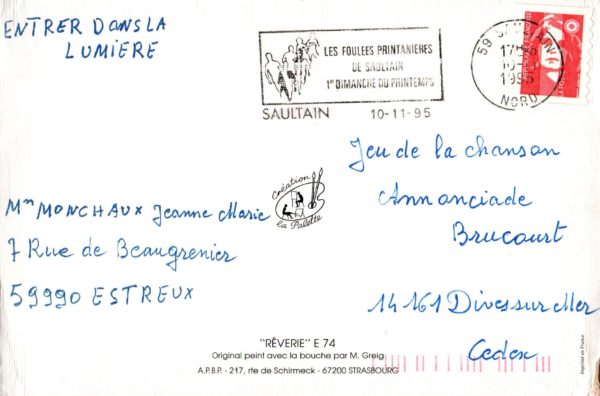 ENTRER DANS LA
LUMIÈRE
LES FOULEES PRINTANIERES
DE SAULTAIN
1er DIMANCHE DU PRINTEMPS
SAULTAIN 10-11-95
59 SAULTAIN
17H
10-11
1995
NORD
Jeu de la chanson
Annonciade
Brucourt
14 161 Dives sur Mer
Cedex
Création
la Palette
Mm MONCHAUX Jeanne Marie
7 Rue de Beaugrenier
59990 ESTREUX
"RÊVERIE" E 74
Original peint avec la bouche par M. Greig
A.P.B.P. - 217, rte de Schirmeck - 67200 STRASBOURG
Imprimé en France